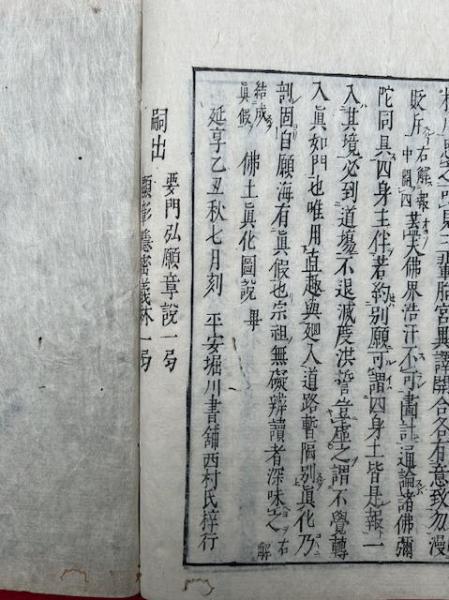 貶斥 右解報 中開四 蓋夫佛界浩汗不可畫計通論諸佛彌
陀同具四身主伴若約別願可謂四身土皆是報一
入其境必到道場不退滅度洪誓豈虛之謂不覺轉
入眞如門也唯用直趣與廻入道路暫隔別眞化乃
剖固自願海有眞假也宗祖無礙辨讀者深味之 右解
結成眞假 佛土眞化圖說 畢
延享乙丑秋七月刻 平安堀川書舖西村氏梓行
嗣出 要門弘願章說一卷
顯彰隱密義林一卷